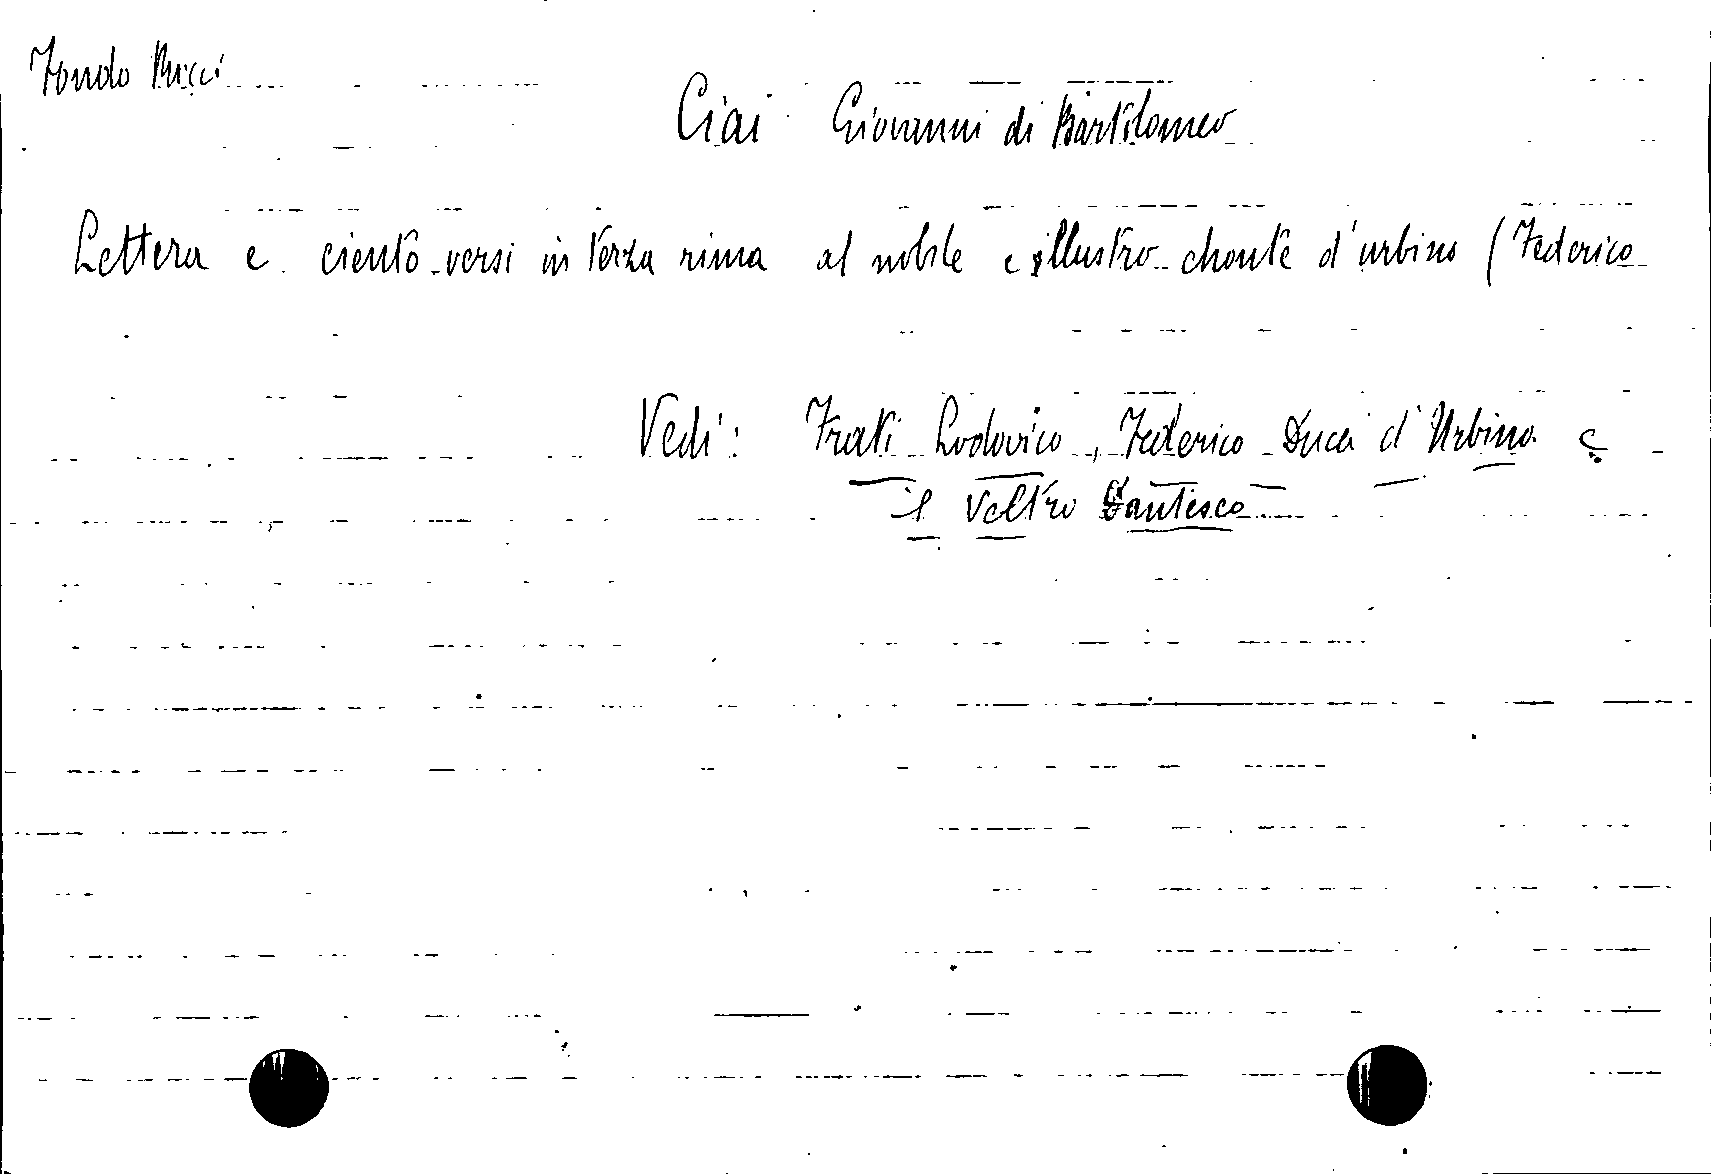 Fondo Ricci
Ciai Giovanni di Bartolomeo
Lettera e ciento versi in terza rima al nobile e illustro chonte d'urbino (Federico
Vedi: Frati Lodovico, Federico Duca d'Urbino e
il Veltro Dantesco